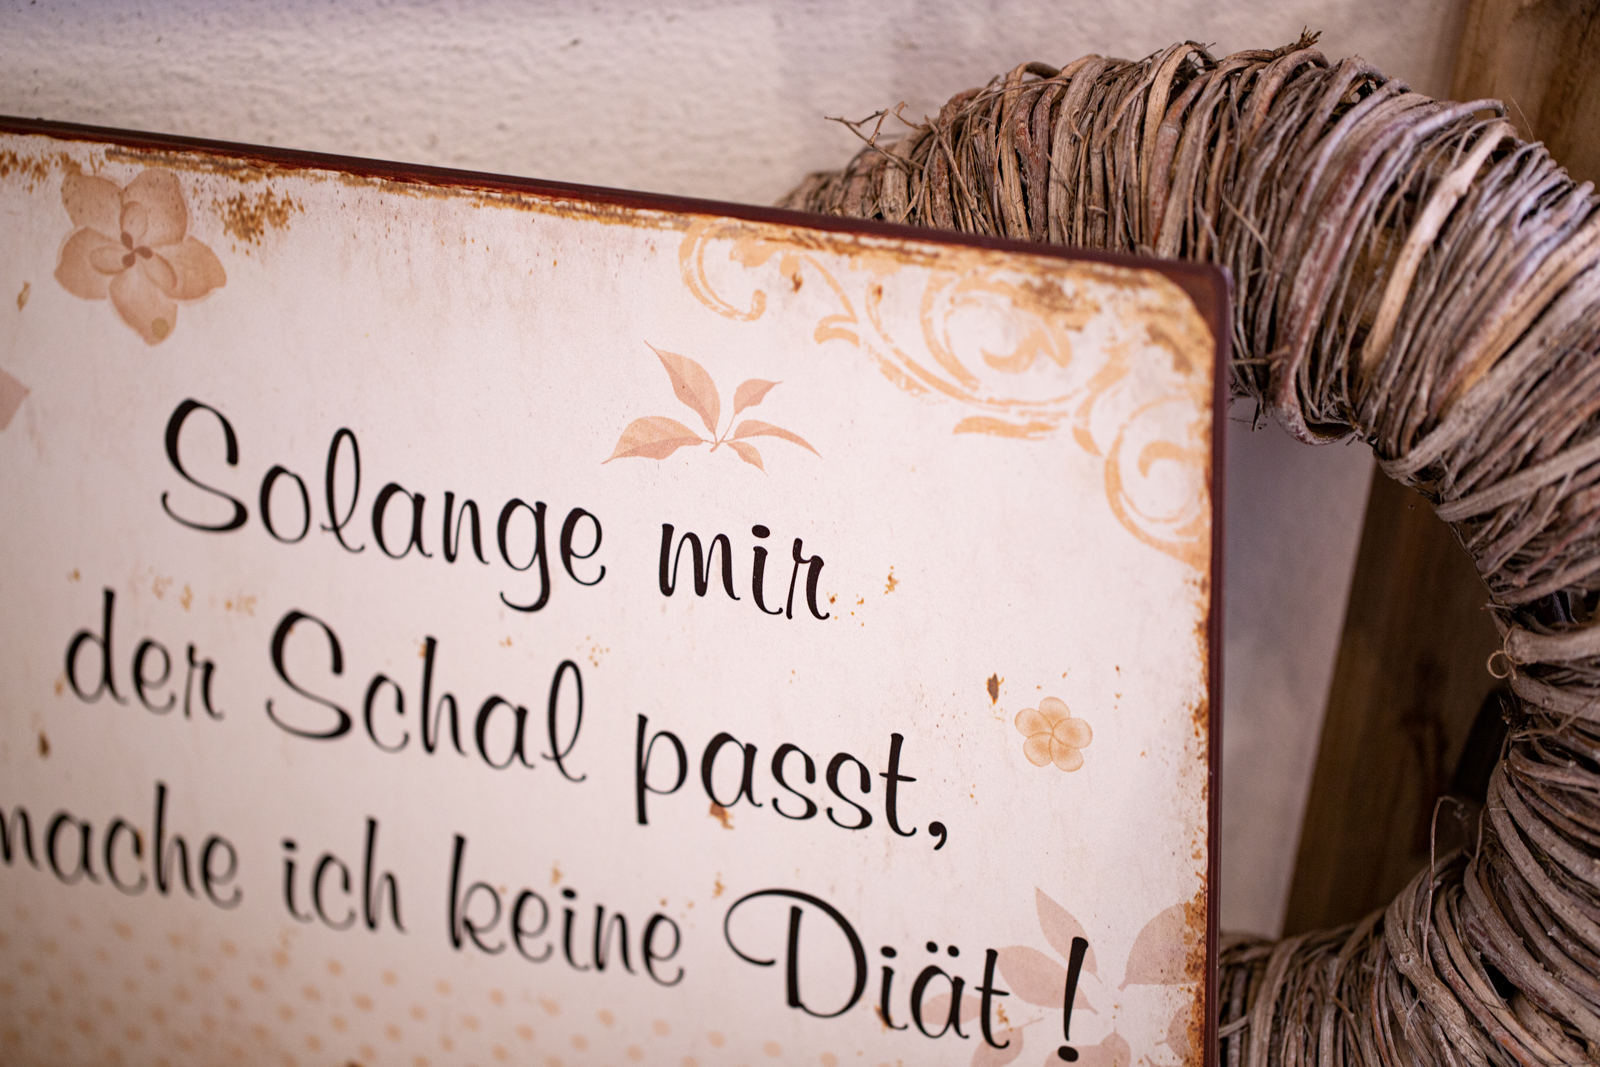 Solange mir
der Schal passt,
mache ich keine Diät !